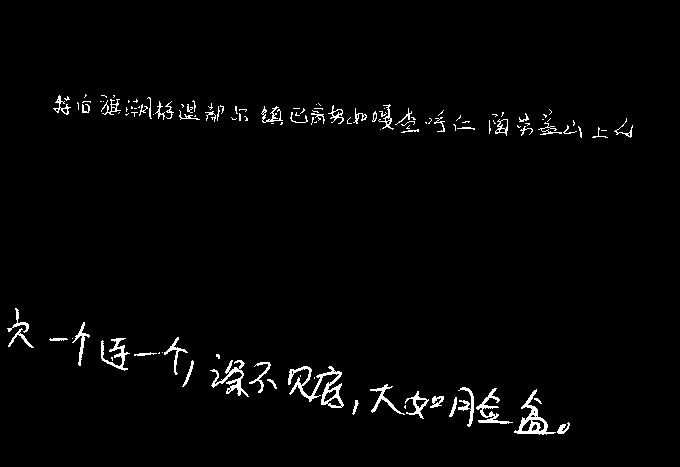 特后旗潮格温都尔镇巴音努如嘎查呼仁陶劳盖山上
穴一个连一个,深不见底,大如脸盆。